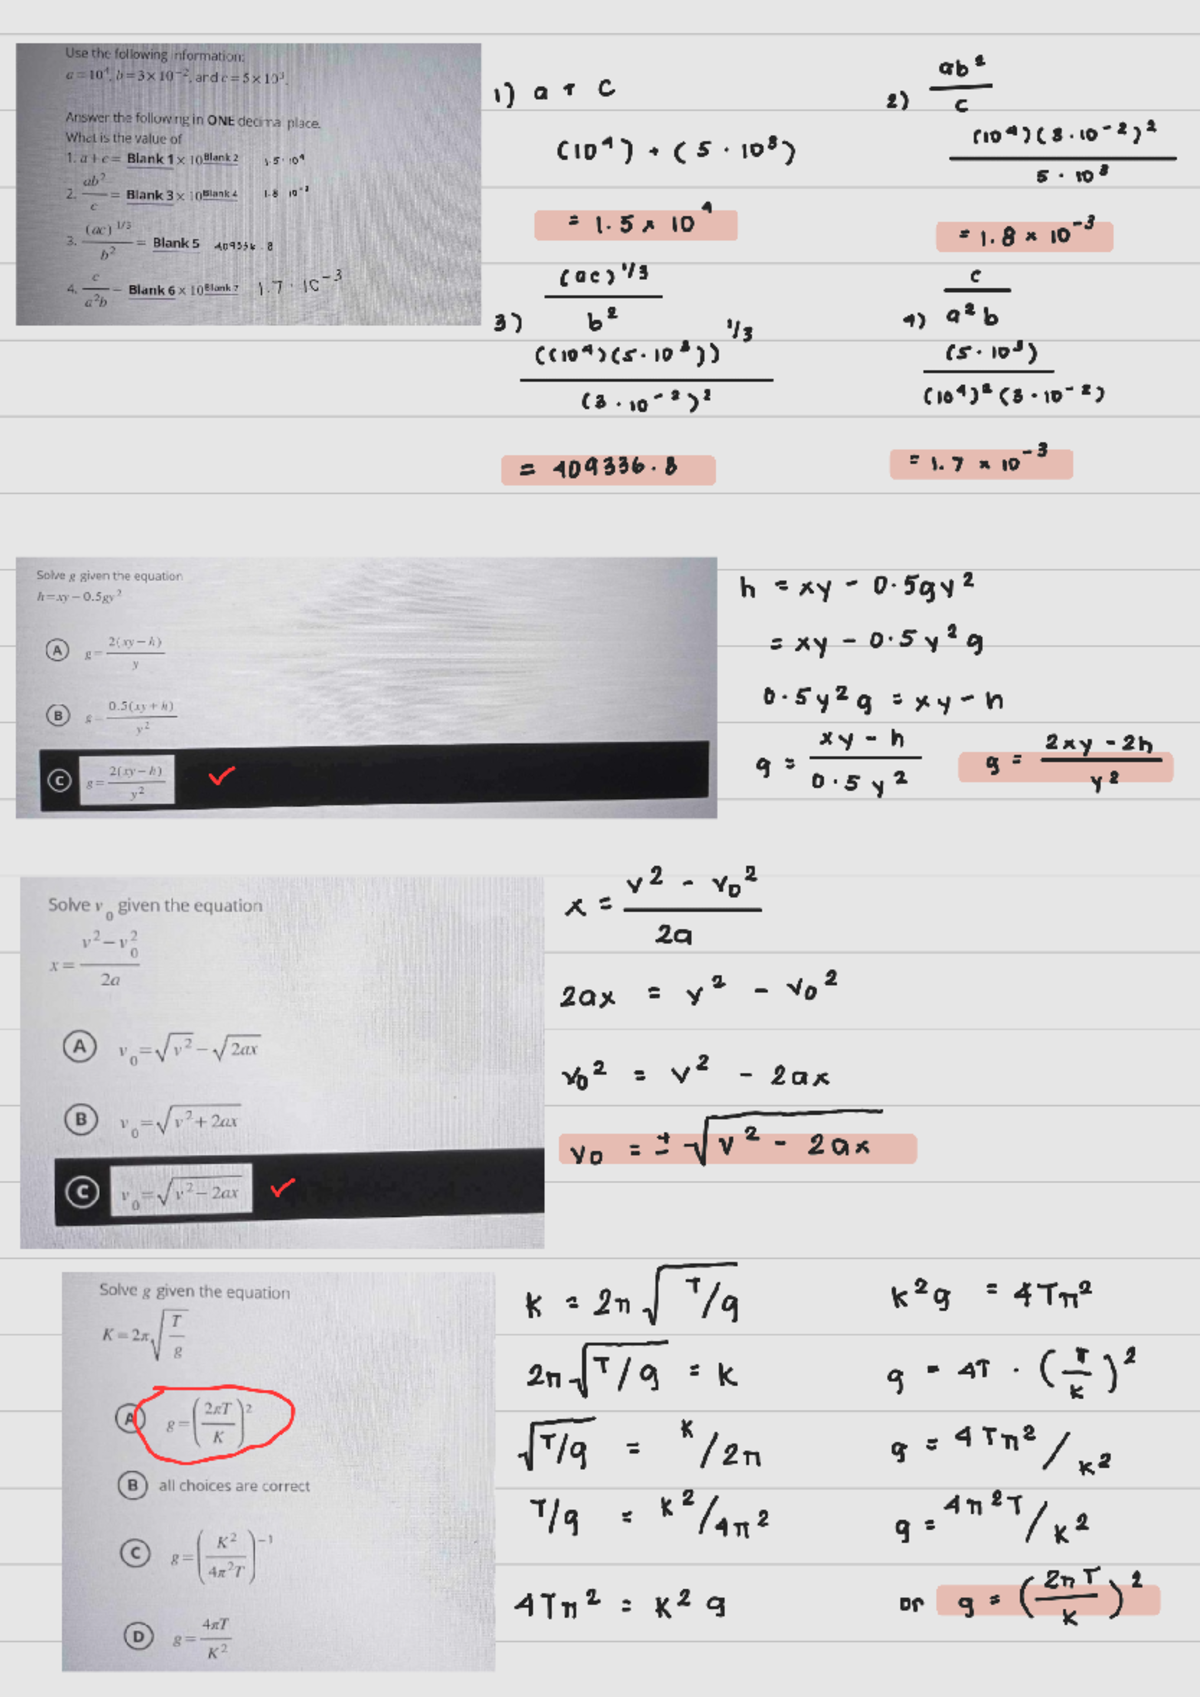 Use the following information:
a = 10⁴, b = 3 × 10⁻², and c = 5 × 10³.
Answer the following in ONE decimal place.
What is the value of
1. a + c = Blank 1 × 10^Blank 2    1.5 · 10⁴
2. ab²/c = Blank 3 × 10^Blank 4    1.8 · 10⁻³
3. (ac)^1/3 / b² = Blank 5    409336.8
4. c/a²b = Blank 6 × 10^Blank 7    1.7 · 10⁻³
1) a + c
(10⁴) + (5 · 10³)
= 1.5 × 10⁴
2) ab²/c
(10⁴)(3 · 10⁻²)² / 5 · 10³
= 1.8 × 10⁻³
3) (ac)^1/3 / b²
((10⁴)(5 · 10³))^1/3 / (3 · 10⁻²)²
= 409336.8
4) c / a²b
(5 · 10³) / (10⁴)²(3 · 10⁻²)
= 1.7 × 10⁻³
Solve g given the equation
h = xy − 0.5gy²
A g = 2(xy − h)/y
B g = 0.5(xy + h)/y²
C g = 2(xy − h)/y² ✓
h = xy − 0.5gy²
= xy − 0.5y²g
0.5y²g = xy − h
g = xy − h / 0.5y²
g = 2xy − 2h / y²
Solve v₀ given the equation
x = v² − v₀² / 2a
A v₀ = √v² − √2ax
B v₀ = √(v² + 2ax)
C v₀ = √(v² − 2ax) ✓
x = v² − v₀² / 2a
2ax = v² − v₀²
v₀² = v² − 2ax
v₀ = ± √(v² − 2ax)
Solve g given the equation
K = 2π√(T/g)
A g = (2πT/K)²
B all choices are correct
C g = (K²/4π²T)⁻¹
D g = 4πT/K²
K = 2π√(T/g)
2π√(T/g) = K
√(T/g) = K/2π
T/g = K²/4π²
4Tπ² = K²g
K²g = 4Tπ²
g = 4T · (π/K)²
g = 4Tπ²/K²
g = 4π²T/K²
or g = (2πT/K)²